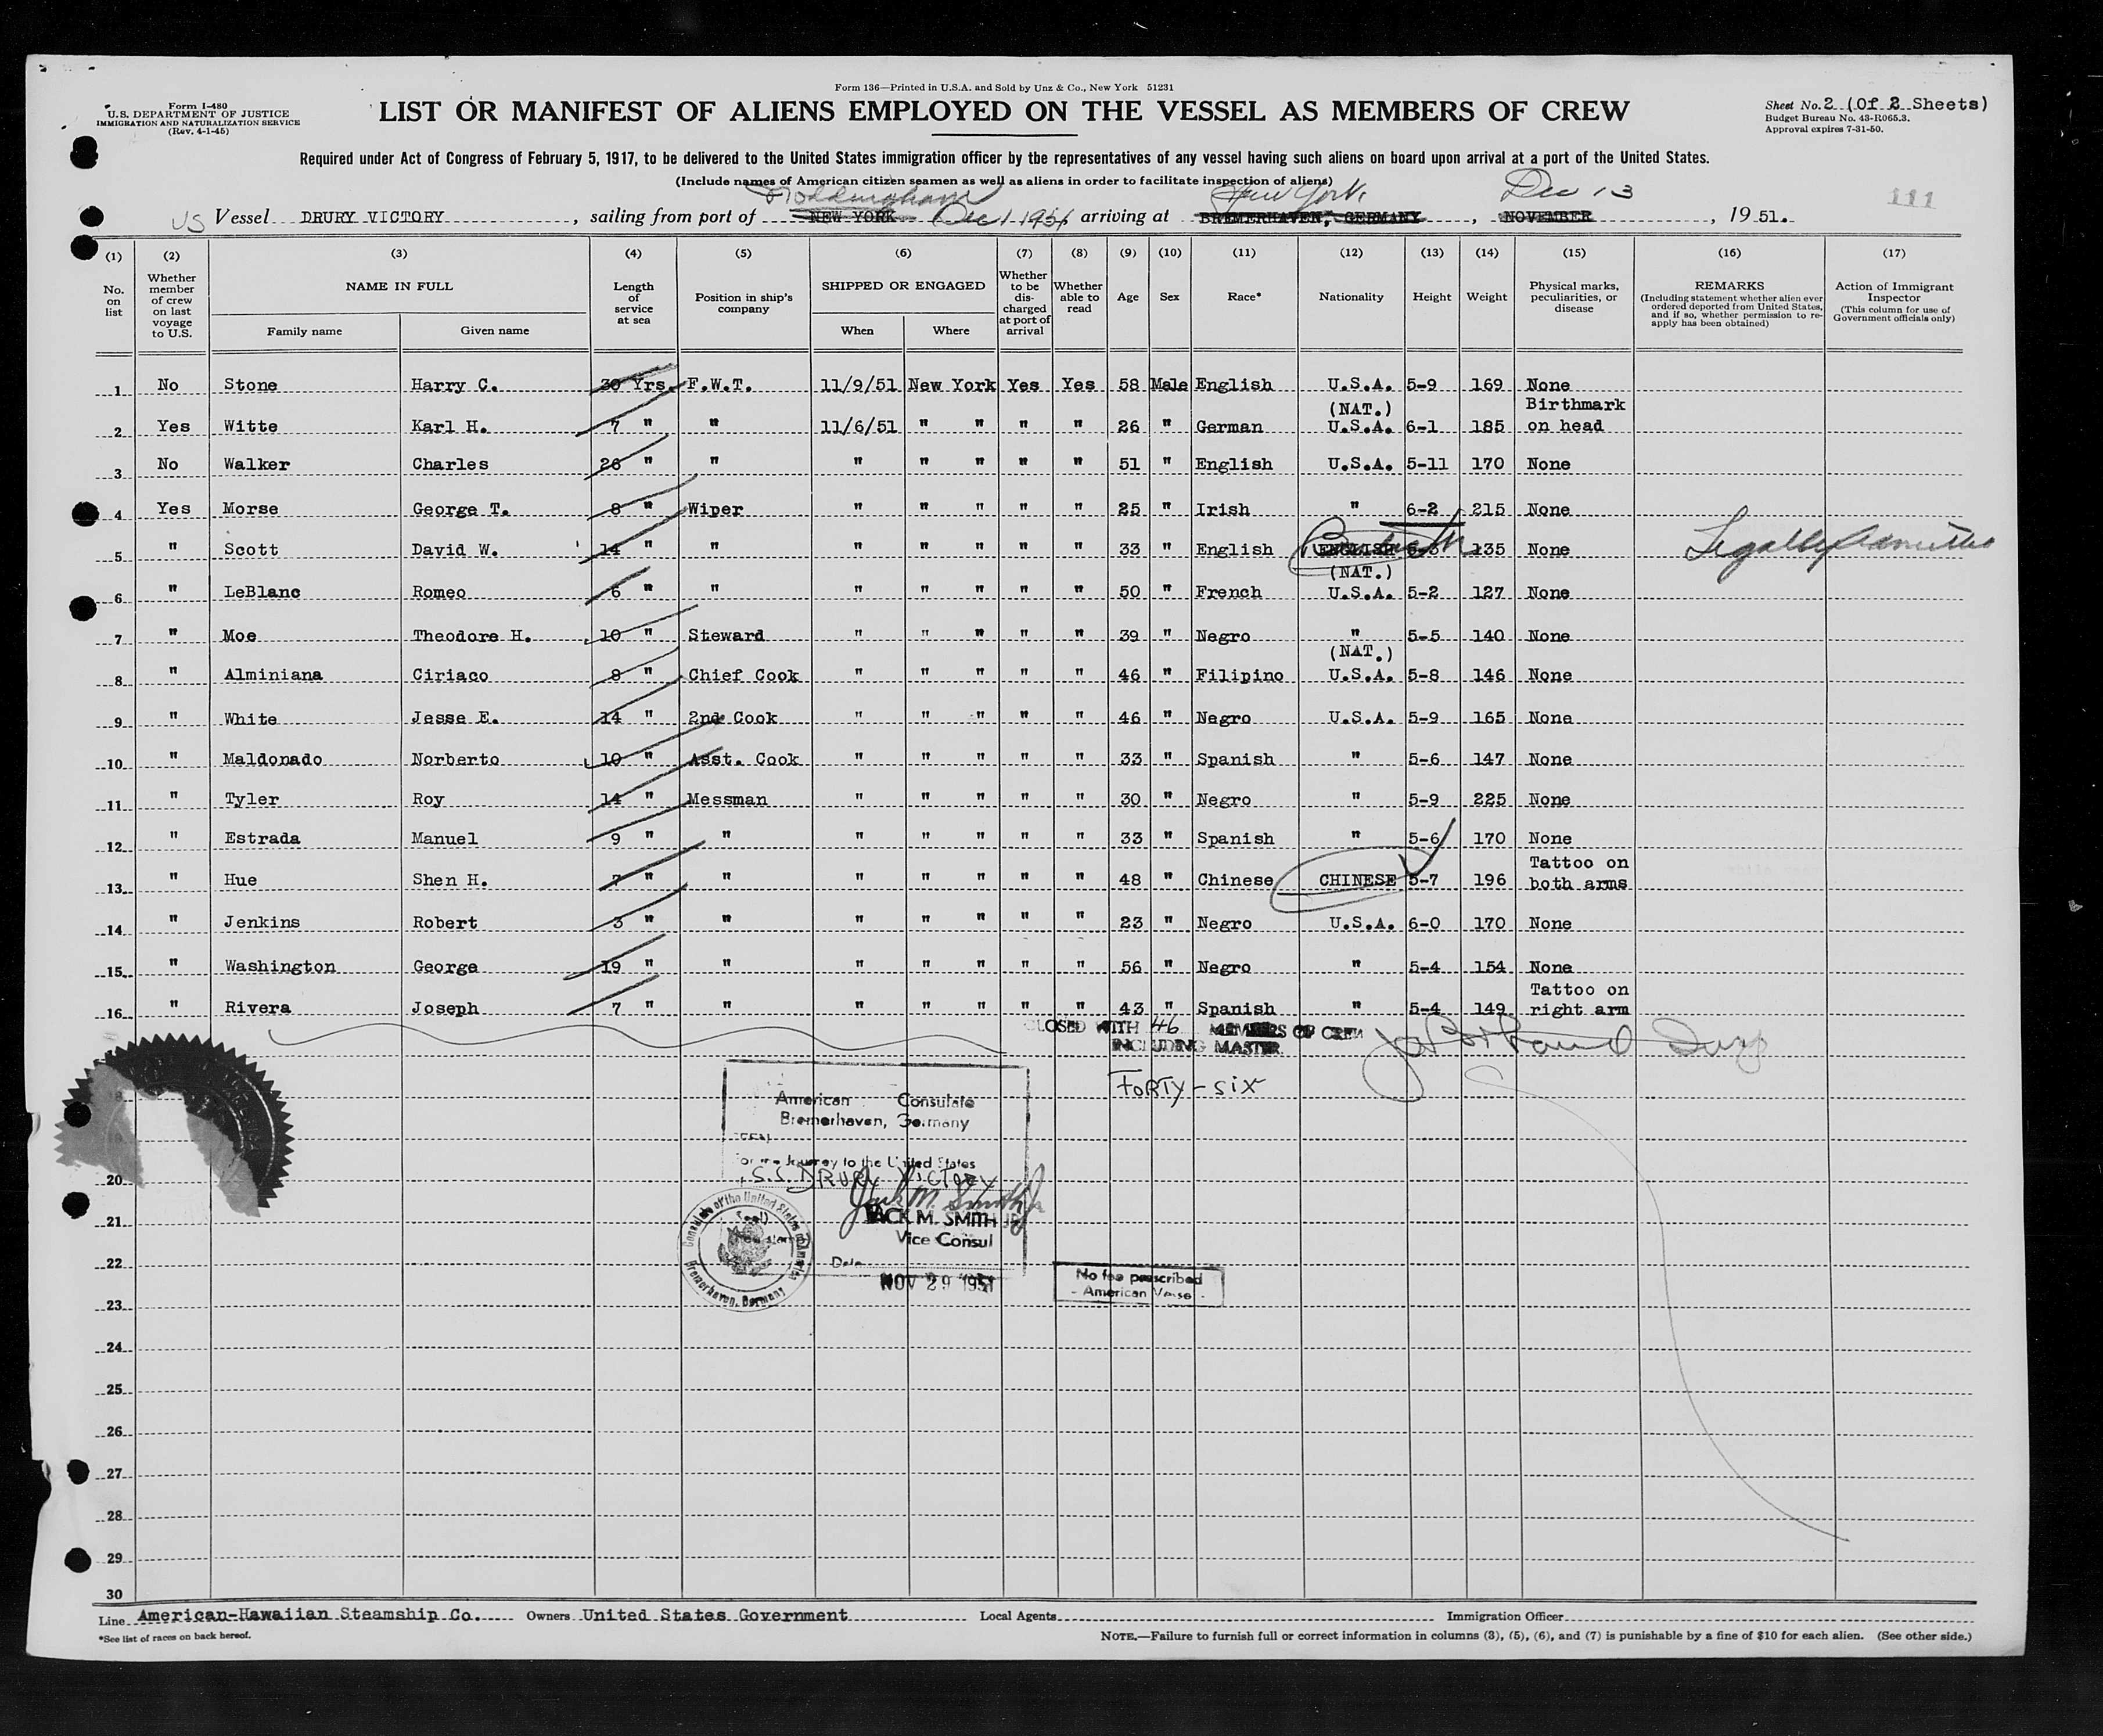 Form 136—Printed in U.S.A. and Sold by Unz & Co., New York 51231
Form I-480
U.S. DEPARTMENT OF JUSTICE
IMMIGRATION AND NATURALIZATION SERVICE
(Rev. 4-1-45)
LIST OR MANIFEST OF ALIENS EMPLOYED ON THE VESSEL AS MEMBERS OF CREW
Sheet No. 2 (Of 2 Sheets)
Budget Bureau No. 43-R065.3.
Approval expires 7-31-50.
Required under Act of Congress of February 5, 1917, to be delivered to the United States immigration officer by the representatives of any vessel having such aliens on board upon arrival at a port of the United States.
(Include names of American citizen seamen as well as aliens in order to facilitate inspection of aliens)
New York Dec 13
111
US Vessel DRURY VICTORY, sailing from port of NEW YORK Dec 1-1951 arriving at BREMERHAVEN, GERMANY, NOVEMBER, 1951.
(1) (2) (3) (4) (5) (6) (7) (8) (9) (10) (11) (12) (13) (14) (15) (16) (17)
No. on list
Whether member of crew on last voyage to U.S.
NAME IN FULL
Family name
Given name
Length of service at sea
Position in ship's company
SHIPPED OR ENGAGED
When
Where
Whether to be discharged at port of arrival
Whether able to read
Age
Sex
Race*
Nationality
Height
Weight
Physical marks, peculiarities, or disease
REMARKS
(Including statement whether alien ever ordered deported from United States, and if so, whether permission to reapply has been obtained)
Action of Immigrant Inspector
(This column for use of Government officials only)
1 No Stone Harry C. 30 Yrs. F.W.T. 11/9/51 New York Yes Yes 58 Male English U.S.A. 5-9 169 None
2 Yes Witte Karl H. 7 " " 11/6/51 " " " " 26 " German (NAT.) U.S.A. 6-1 185 Birthmark on head
3 No Walker Charles 26 " " " " " " " 51 " English U.S.A. 5-11 170 None
4 Yes Morse George T. 8 " Wiper " " " " " 25 " Irish " 6-2 215 None
5 " Scott David W. 14 " " " " " " " 33 " English ENGLISH British 135 None Legally Admitted
6 " LeBlanc Romeo 6 " " " " " " " 50 " French (NAT.) U.S.A. 5-2 127 None
7 " Moe Theodore H. 10 " Steward " " " " " 39 " Negro " 5-5 140 None
8 " Alminiana Ciriaco 8 " Chief Cook " " " " " 46 " Filipino (NAT.) U.S.A. 5-8 146 None
9 " White Jesse E. 14 " 2nd Cook " " " " " 46 " Negro U.S.A. 5-9 165 None
10 " Maldonado Norberto 10 " Asst. Cook " " " " " 33 " Spanish " 5-6 147 None
11 " Tyler Roy 14 " Messman " " " " " 30 " Negro " 5-9 225 None
12 " Estrada Manuel 9 " " " " " " " 33 " Spanish " 5-6 170 None
13 " Hue Shen H. 7 " " " " " " " 48 " Chinese CHINESE 5-7 196 Tattoo on both arms
14 " Jenkins Robert 3 " " " " " " " 23 " Negro U.S.A. 6-0 170 None
15 " Washington George 19 " " " " " " " 56 " Negro " 5-4 154 None
16 " Rivera Joseph 7 " " " " " " " 43 " Spanish " 5-4 149 Tattoo on right arm
CLOSED WITH 46 MEMBERS OF CREW
INCLUDING MASTER.
FORTY-SIX
18
American Consulate
Bremerhaven, Germany
SEEN
19
For the Journey to the United States
20
S.S. DRURY VICTORY
Jack M. Smith Jr
JACK M. SMITH JR
21
Vice Consul
22
Date
NOV 29 1951
Consulate of the United States of America
Bremerhaven, Germany
No fee prescribed
- American Vessel -
23
24
25
26
27
28
29
30
Line American-Hawaiian Steamship Co. Owners United States Government Local Agents Immigration Officer
*See list of races on back hereof.
NOTE.—Failure to furnish full or correct information in columns (3), (5), (6), and (7) is punishable by a fine of $10 for each alien. (See other side.)